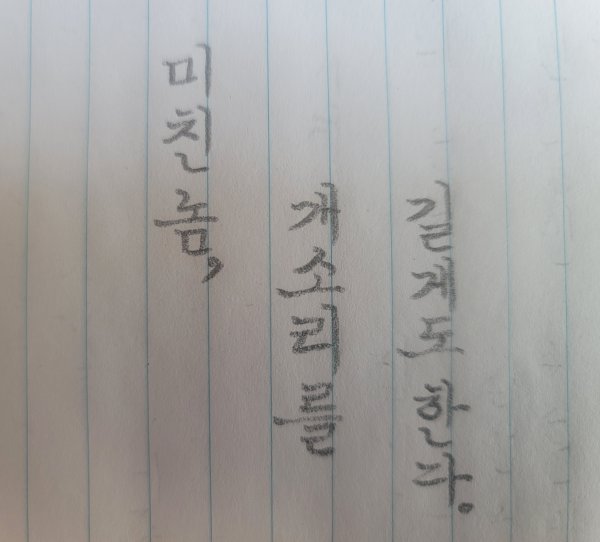 미친놈,
개소리를
길게도 한다.